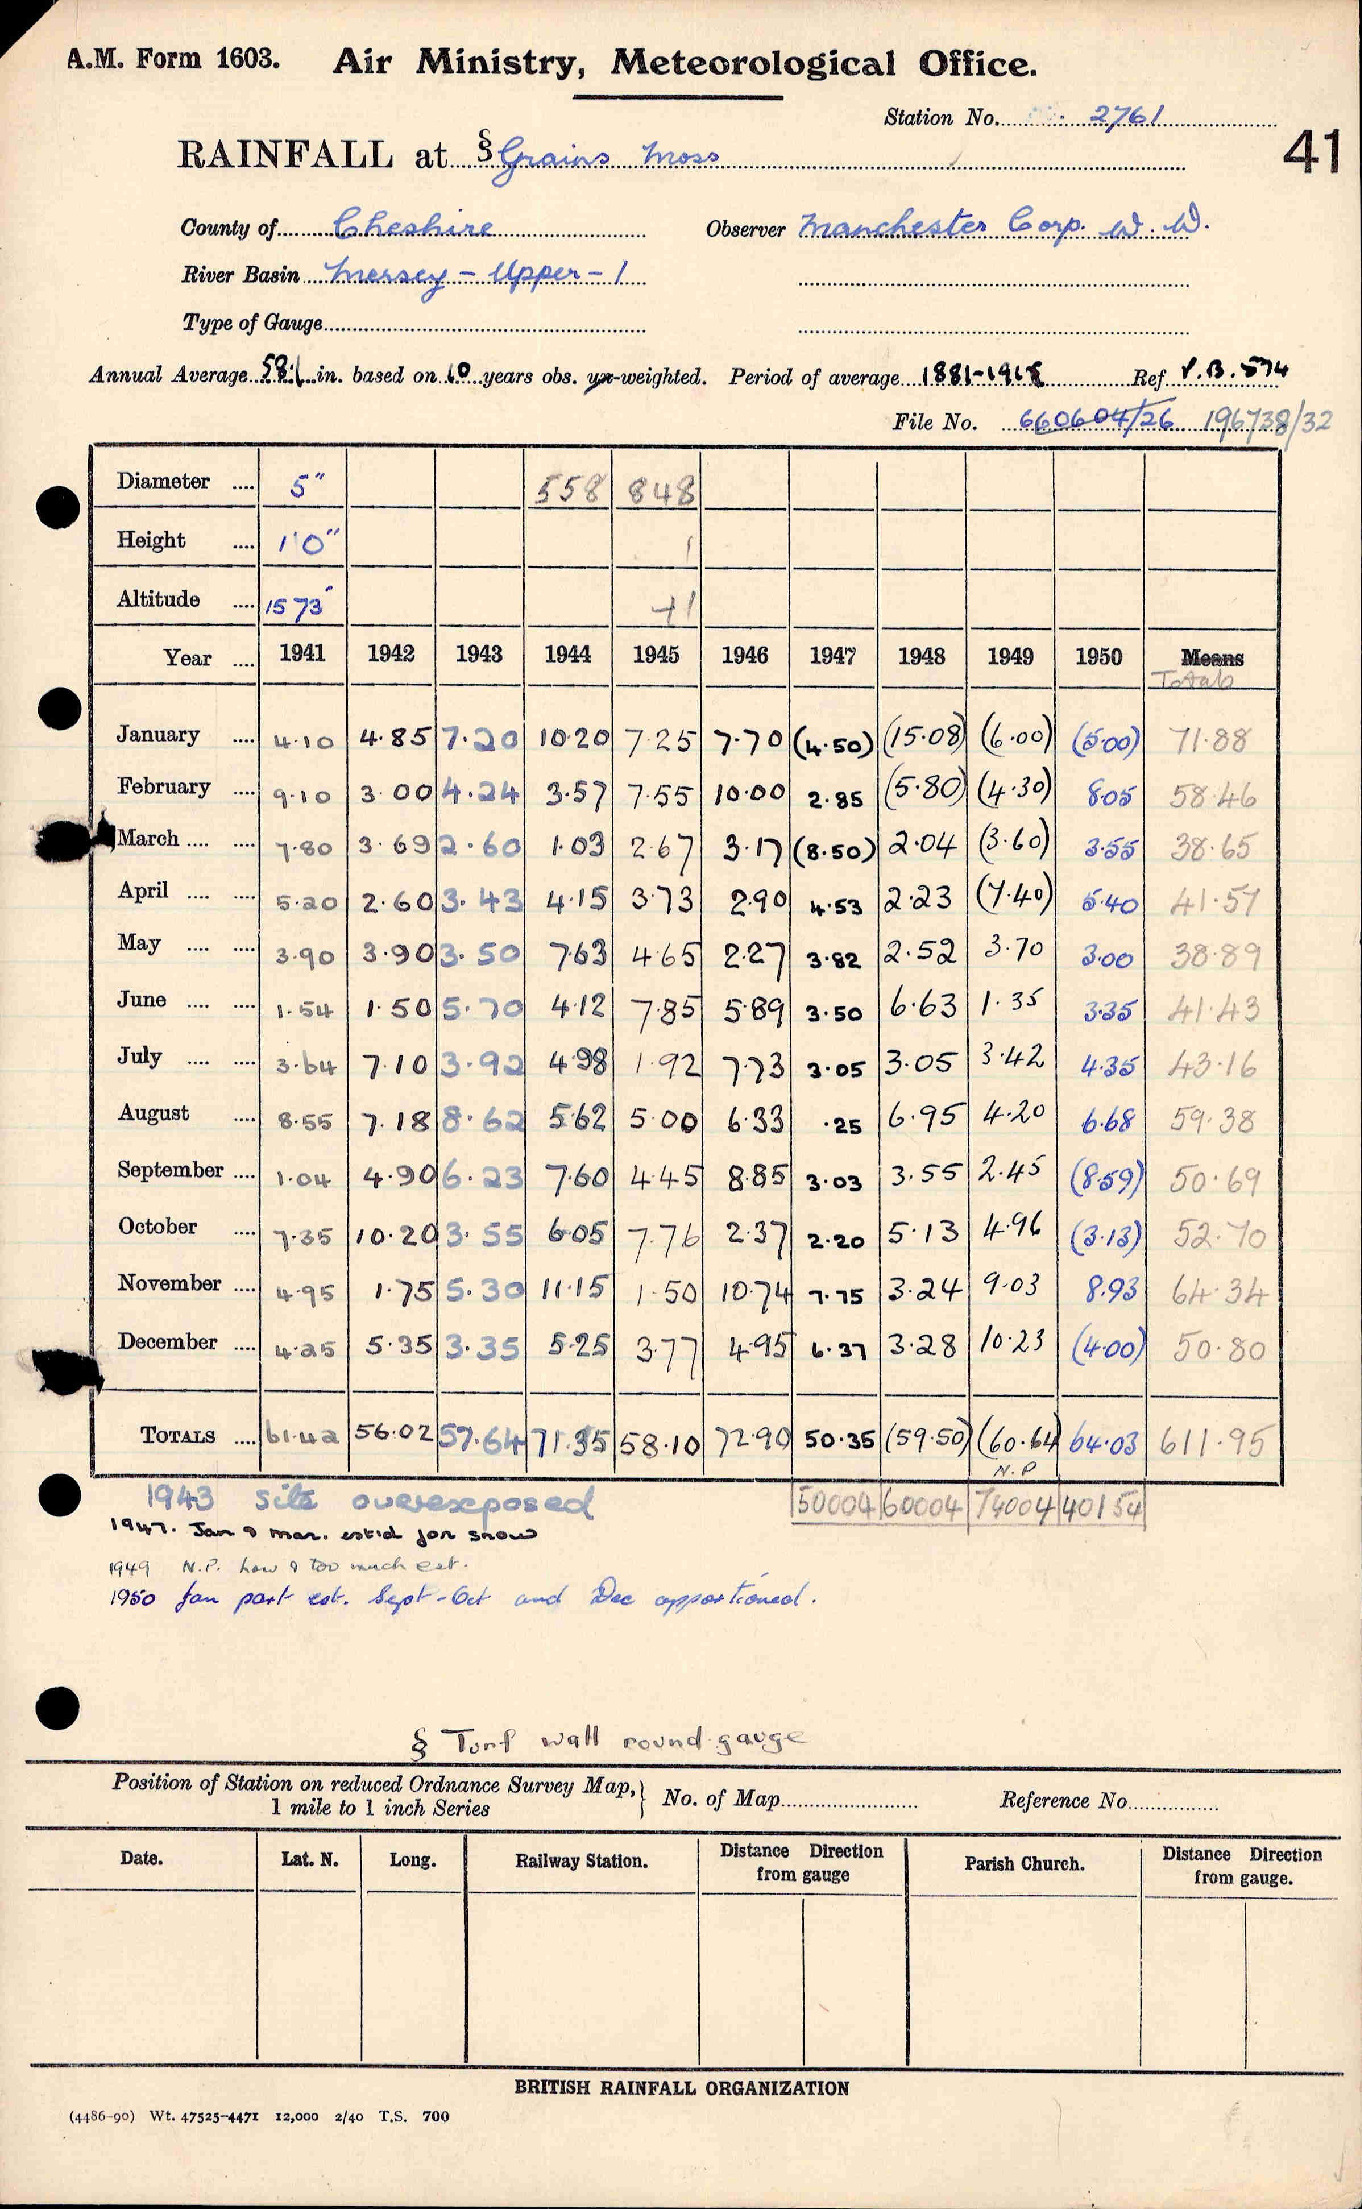 A.M. Form 1603. Air Ministry, Meteorological Office.
Station No. 2761
41
RAINFALL at § Grains Moss
County of Cheshire Observer Manchester Corp. W. W.
River Basin Mersey - Upper - 1
Type of Gauge
Annual Average 58.1 in. based on 10 years obs. un-weighted. Period of average 1881-1915 Ref V.B. 574
File No. 660604/26 196738/32
Diameter .... 5" 558 848
Height .... 1'0" 1
Altitude .... 1573' +1
Year .... 1941 1942 1943 1944 1945 1946 1947 1948 1949 1950 Means
Totals
January .... 4.10 4.85 7.20 10.20 7.25 7.70 (4.50) (15.08) (6.00) (5.00) 71.88
February .... 9.10 3.00 4.24 3.57 7.55 10.00 2.85 (5.80) (4.30) 8.05 58.46
March .... .... 7.80 3.69 2.60 1.03 2.67 3.17 (8.50) 2.04 (3.60) 3.55 38.65
April .... .... 5.20 2.60 3.43 4.15 3.73 2.90 4.53 2.23 (7.40) 5.40 41.57
May .... .... 3.90 3.90 3.50 7.63 4.65 2.27 3.82 2.52 3.70 3.00 38.89
June .... .... 1.54 1.50 5.70 4.12 7.85 5.89 3.50 6.63 1.35 3.35 41.43
July .... .... 3.64 7.10 3.92 4.98 1.92 7.73 3.05 3.05 3.42 4.35 43.16
August .... 8.55 7.18 8.62 5.62 5.00 6.33 .25 6.95 4.20 6.68 59.38
September .... 1.04 4.90 6.23 7.60 4.45 8.85 3.03 3.55 2.45 (8.59) 50.69
October .... 7.35 10.20 3.55 6.05 7.76 2.37 2.20 5.13 4.96 (3.13) 52.70
November .... 4.95 1.75 5.30 11.15 1.50 10.74 7.75 3.24 9.03 8.93 64.34
December .... 4.25 5.35 3.35 5.25 3.77 4.95 6.37 3.28 10.23 (4.00) 50.80
TOTALS .... 61.42 56.02 57.64 71.35 58.10 72.90 50.35 (59.50) (60.64) 64.03 611.95
N.P
50004 60004 74004 40154
1943 site overexposed
1947. Jan & Mar. est'd for snow
1949 N.P. low & too much est.
1950 Jan part est. Sept-Oct and Dec apportioned.
§ Turf wall round gauge
Position of Station on reduced Ordnance Survey Map,
1 mile to 1 inch Series } No. of Map Reference No.
Date. Lat. N. Long. Railway Station. Distance Direction from gauge Parish Church. Distance Direction from gauge.
BRITISH RAINFALL ORGANIZATION
(4486-90) Wt. 47525-4471 12,000 2/40 T.S. 700